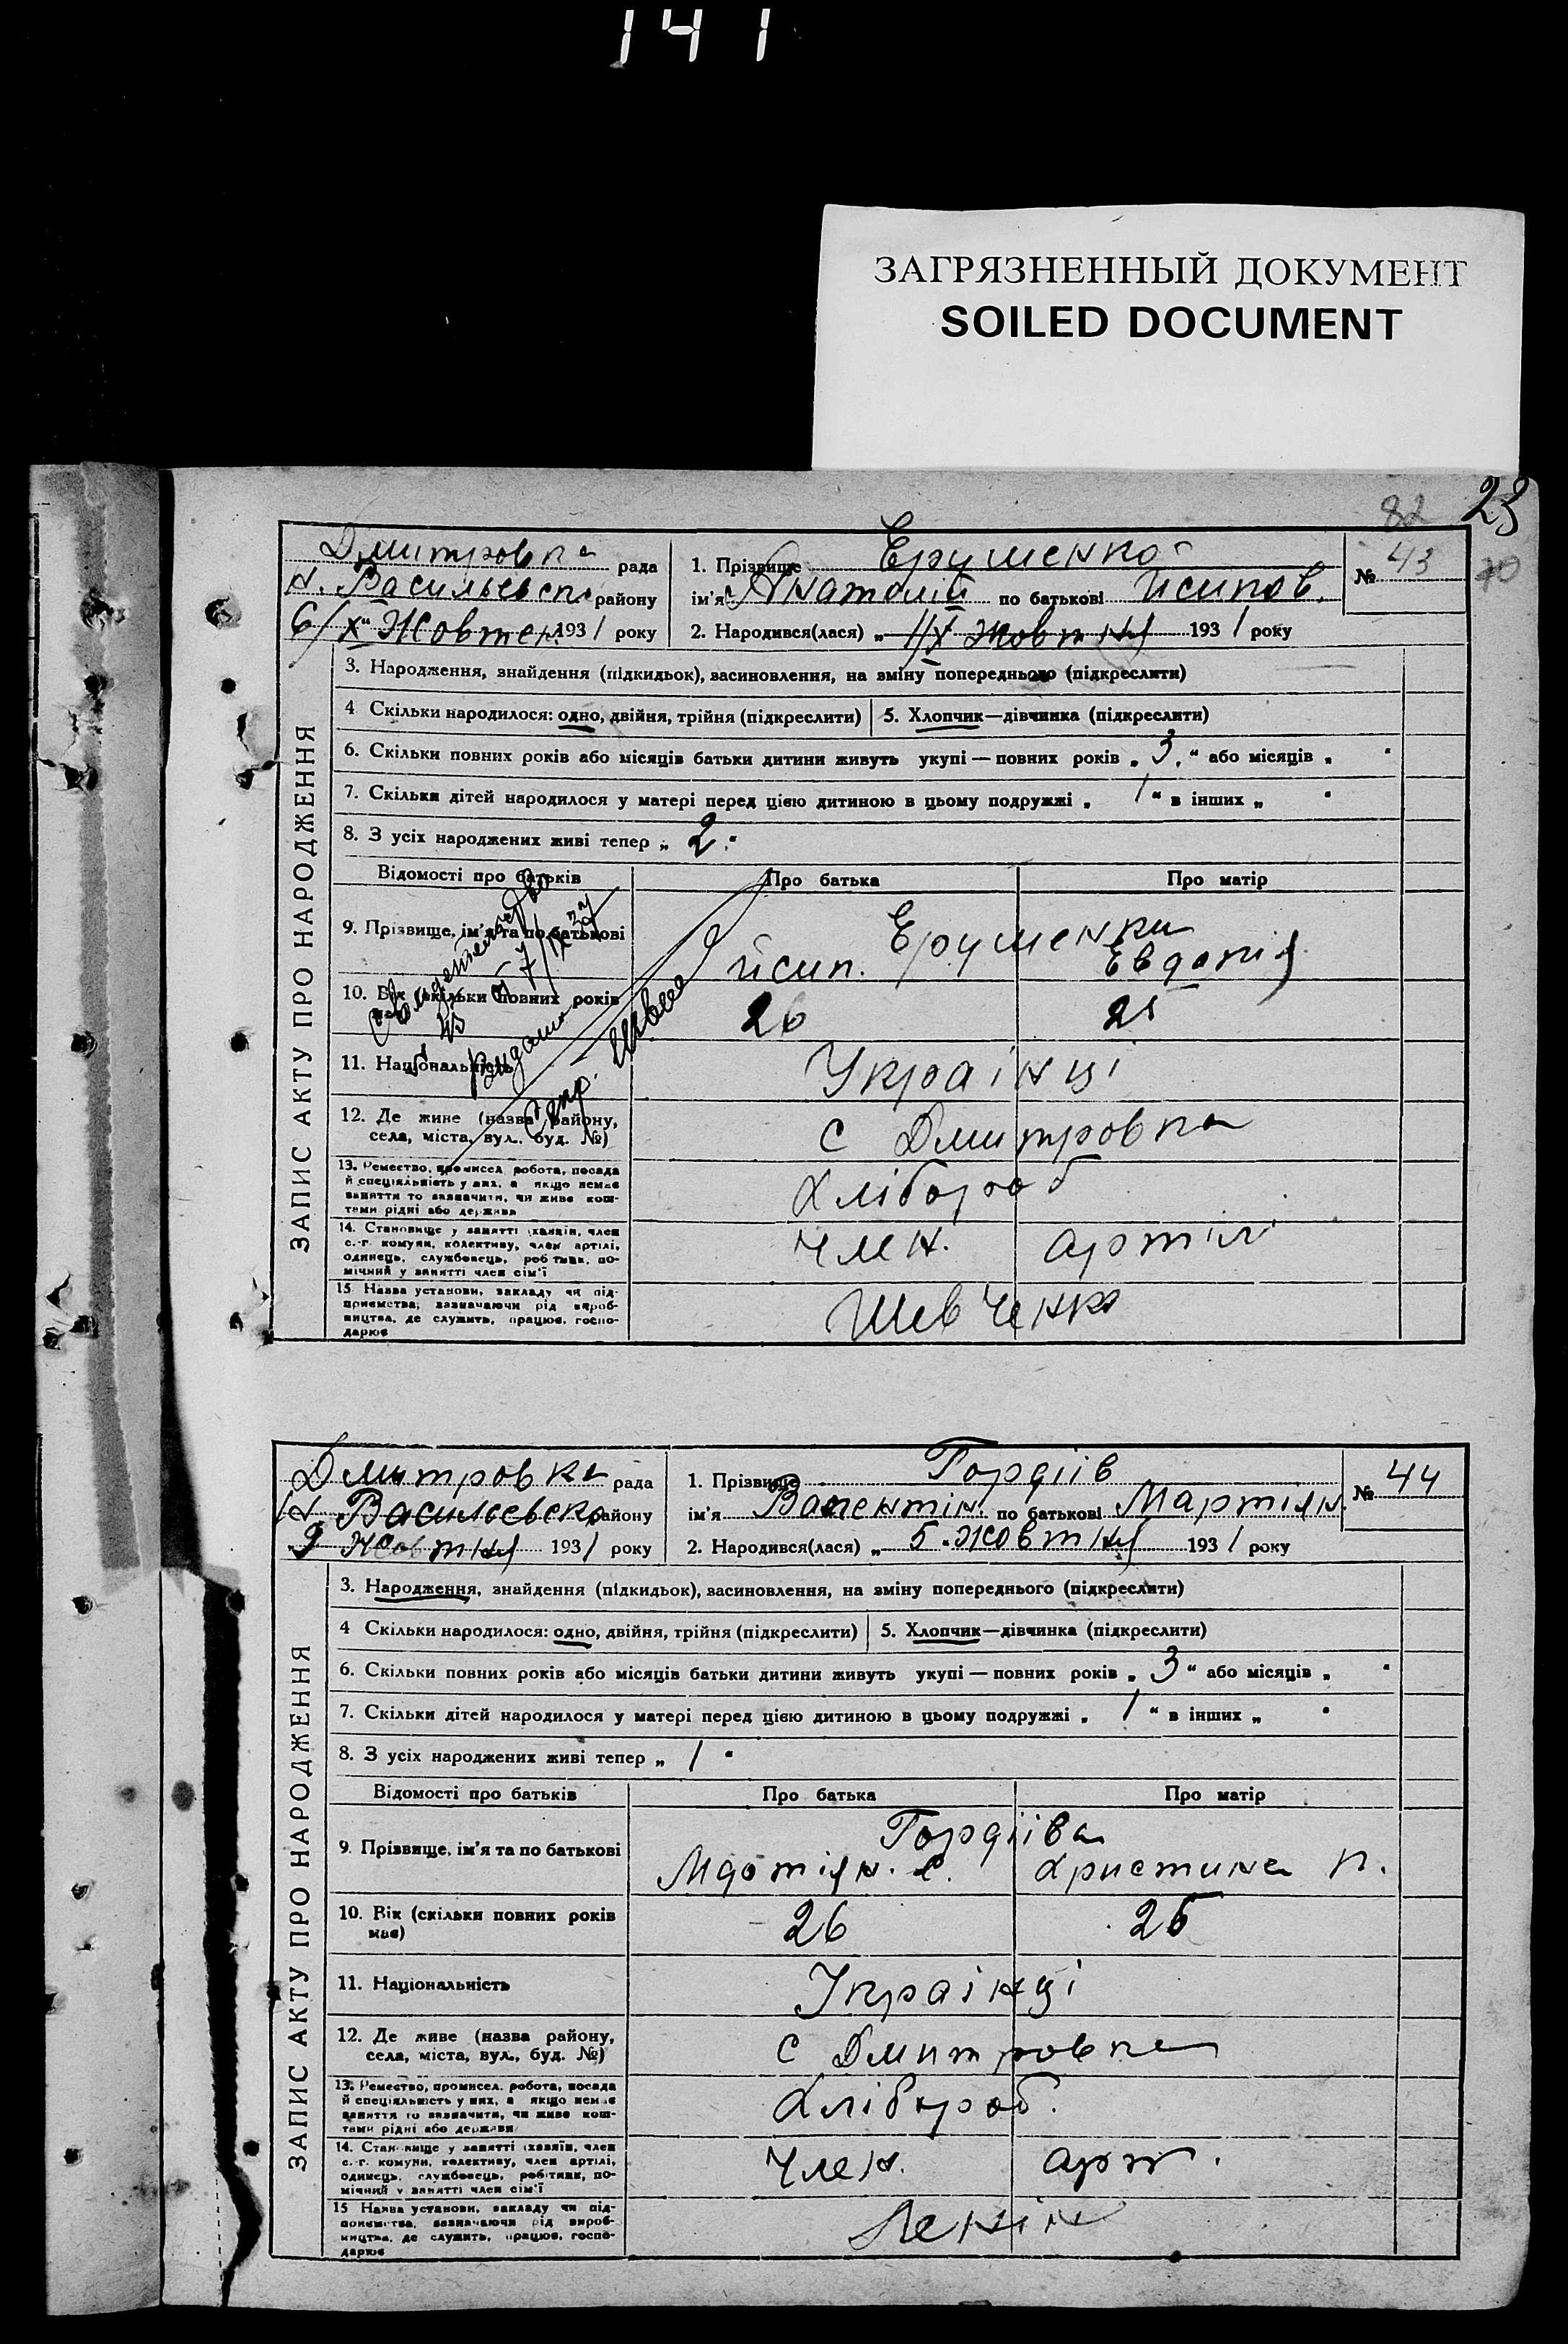 141
ЗАГРЯЗНЕННЫЙ ДОКУМЕНТ
SOILED DOCUMENT
82 23
70
Дмитровка рада
Н. Васильевск. району
6/X Жовтен. 1931 року
1. Прізвище Єрушенко
ім'я Анатолій по батькові Йсипов.
2. Народився(лася) „ 1/X Жовтня 1931 року
№ 43
ЗАПИС АКТУ ПРО НАРОДЖЕННЯ
3. Народження, знайдення (підкидьок), засиновлення, на зміну попереднього (підкреслити)
4 Скільки народилося: одно, двійня, трійня (підкреслити) 5. Хлопчик—дівчинка (підкреслити)
6. Скільки повних років або місяців батьки дитини живуть укупі — повних років „ 3 " або місяців „ "
7. Скільки дітей народилося у матері перед цією дитиною в цьому подружжі „ 1 " в інших „ "
8. З усіх народжених живі тепер „ 2 "
Відомості про батьків Про батька Про матір
9. Прізвище, ім'я та по батькові Єрушенки
Йсип. Євдокія
10. Вік (скільки повних років 26
11. Національність Українці
12. Де живе (назва району,
села, міста, вул., буд. №) с Дмитровка
13. Ремество, промисел, робота, посада
й спеціяльність у них, а якщо немає
заняття то зазначити, чи живе кош-
тами рідні або держави Хлібороб
14. Становище у занятті (хазяїн, член
с.-г. комуни, колективу, член артілі,
одинець, службовець, робітник, по-
мічний у занятті член сім'ї Член. Артіл
15 Назва установи, закладу чи під-
приємства, зазначаючи рід вироб-
ництва, де служить, працює, госпо-
дарює Шевченка
Дмитровка рада
Н Васильевско району
9 Жовтня 1931 року
1. Прізвище Гордіїв
ім'я Валентін. по батькові Мартіян.
2. Народився(лася) „ 5 " Жовтня 1931 року
№ 44
ЗАПИС АКТУ ПРО НАРОДЖЕННЯ
3. Народження, знайдення (підкидьок), засиновлення, на зміну попереднього (підкреслити)
4 Скільки народилося: одно, двійня, трійня (підкреслити) 5. Хлопчик—дівчинка (підкреслити)
6. Скільки повних років або місяців батьки дитини живуть укупі — повних років „ 3 " або місяців „ "
7. Скільки дітей народилося у матері перед цією дитиною в цьому подружжі „ 1 " в інших „ "
8. З усіх народжених живі тепер „ 1 "
Відомості про батьків Про батька Про матір
9. Прізвище, ім'я та по батькові Гордіїва
Мартіян. Христина П.
10. Вік (скільки повних років
має) 26 25
11. Національність Українці
12. Де живе (назва району,
села, міста, вул., буд. №) с Дмитровка
13. Ремество, промисел, робота, посада
й спеціяльність у них, а якщо немає
заняття то зазначити, чи живе кош-
тами рідні або держави Хлібороб.
14. Становище у занятті (хазяїн, член
с.-г. комуни, колективу, член артілі,
одинець, службовець, робітник, по-
мічний у занятті член сім'ї Член. Арт.
15 Назва установи, закладу чи під-
приємства, зазначаючи рід вироб-
ництва, де служить, працює, госпо-
дарює Ленін